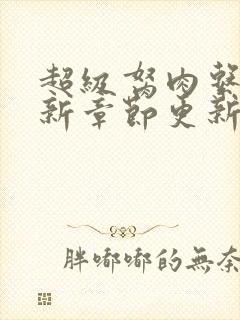 超級胬肉繫
新章節更新
胖嘟嘟的無奈